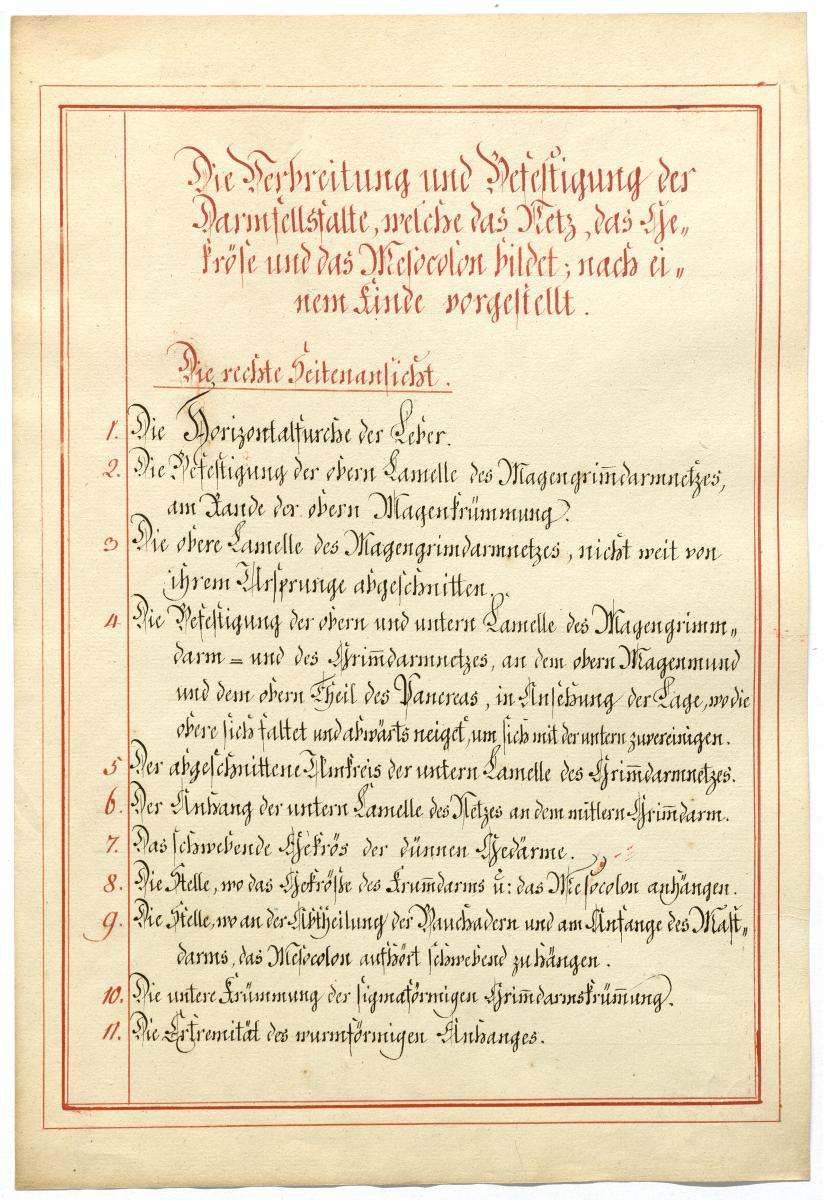 Die Verbreitung und Befestigung der
Darmfellsfalte, welche das Netz, das Ge„
kröse und das Mesocolon bildet; nach ei„
nem Kinde vorgestellt.
Die rechte Seitenansicht.
1. Die Horizontalfurche der Leber.
2. Die Befestigung der obern Lamelle des Magengrim̄darmnetzes,
am Rande der obern Magenkrümmung.
3 Die obere Lamelle des Magengrimdarmnetzes, nicht weit von
ihrem Ursprunge abgeschnitten.
4 Die Befestigung der obern und untern Lamelle des Magengrimm„
darm = und des Grim̄darmnetzes, an dem obern Magenmund
und dem obern Theil des Pancreas, in Ansehung der Lage, wo die
obere sich faltet und abwärts neiget, um sich mit der untern zuvereinigen.
5 Der abgeschnittene Umkreis der untern Lamelle des Grim̄darmnetzes.
6. Der Anhang der untern Lamelle des Netzes an dem mittlern Grim̄darm.
7. Das schwebende Gekrös der dünnen Gedärme.
8. Die Stelle, wo das Gekröße des Krum̄darms u: das Mesocolon anhängen.
9. Die Stelle, wo an der Abtheilung der Bauchadern und am Anfange des Mast„
darms, das Mesocolon aufhört schwebend zu hängen.
10. Die untere Krümmung der sigmaförmigen Grim̄darmskrüm̄ung.
11. Die Extremität des wurmförmigen Anhanges.